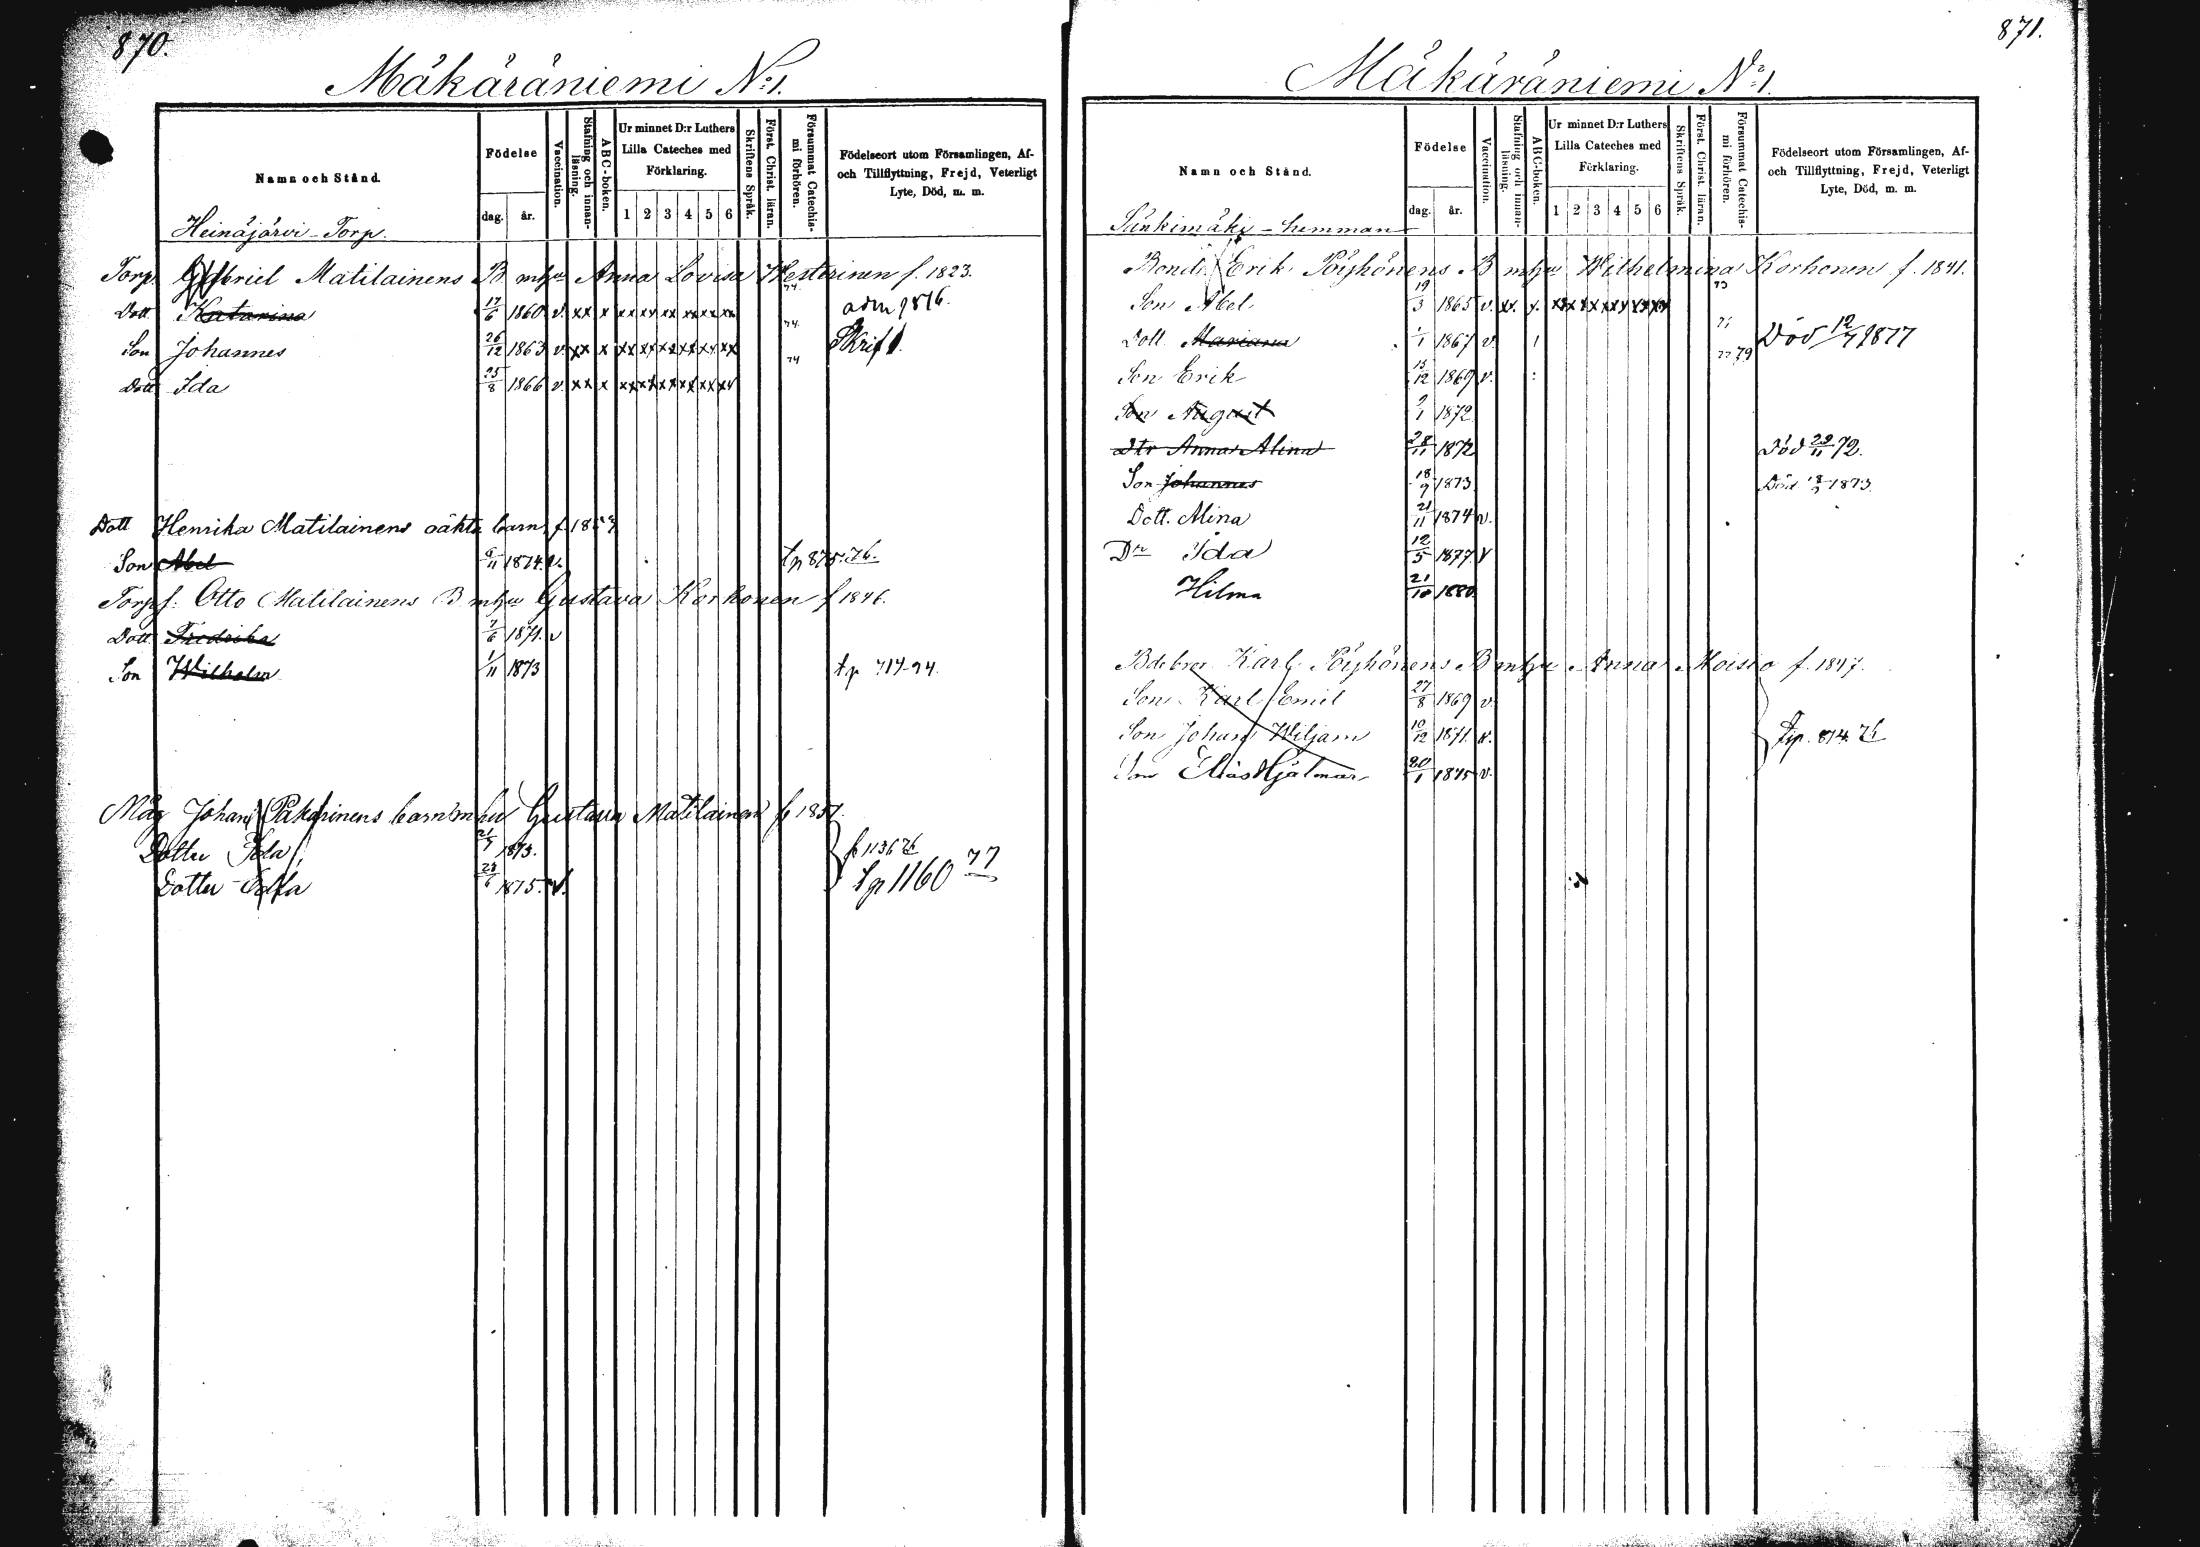 870.
Mäkäräniemi N:o 1.
Namn och Stånd.
Födelse
dag.
år.
Vaccination.
Stafning och innan-läsning.
ABC-boken.
Ur minnet D:r Luthers
Lilla Cateches med
Förklaring.
1 2 3 4 5 6
Skriftens Språk.
Först. Christ. läran.
Försummat Catechis-mi förhören.
Födelseort utom Församlingen, Af-
och Tillflyttning, Frejd, Veterligt
Lyte, Död, m. m.
Heinäjärvi - Torp.
Torp. Gabriel Matilainens B mhu Anna Lovisa Westerinen f. 1823.
Dott Katarina 17/6 1860 v. xx x xx xx xx xx xx xx 74. adm 1876.
Son Johannes 26/12 1863 v. xx x xx xx xx xx xx xx 74. Skrift
Dott Ida 25/8 1866 v. xx x xx xx xx xx xx xx 74
Dott Henrika Matilainens oäkta barn f. 18
Son Abel 1874. v. tp 875. 76.
Torpf: Otto Matilainens B mhu Gustava Korhonen f 1846.
Dott Fredrika 7/6 1871. v
Son Wilhelm 1/11 1873 tp 717-74.
Måg Johan Pakarinens barn m hu Gustava Matilainen f 1851.
Dotter Ida 1873. 1136 76
Dotter Edla 1875. v. tp 1160 77
871.
Mäkäräniemi N:o 1.
Namn och Stånd.
Födelse
dag.
år.
Vaccination.
Stafning och innan-läsning.
ABC-boken.
Ur minnet D:r Luthers
Lilla Cateches med
Förklaring.
1 2 3 4 5 6
Skriftens Språk.
Först. Christ. läran.
Försummat Catechis-mi förhören.
Födelseort utom Församlingen, Af-
och Tillflyttning, Frejd, Veterligt
Lyte, Död, m. m.
Sänkimäki - hemman
Bond. Erik Pöyhönens B mhu Wilhelmina Korhonen f. 1841.
Son Abel 19/3 1865 v. xx. x. xx xx xx xx xx xx 73
Dott Mariana 1/1 1867 v. Död 12/7 1877
Son Erik 13/12 1869 v. 77 79
Son August 9/1 1872
dtr Anna Alina 28/11 1872 Död 29/11 72.
Son Johannes 18/9 1873 Död 1873.
Dott. Mina 21/11 1874 v.
Dr Ida 12/5 1877. v
Hilma 21/10 1880.
Bdebror Karl Pöyhönens B mhu Anna Moisio f. 1847.
Son Karl Emil 27/8 1869 v.
Son Johan Wiljam 10/12 1871. v.
Son Elias Hjalmar 20/1 1875 v.
tp. 874 76